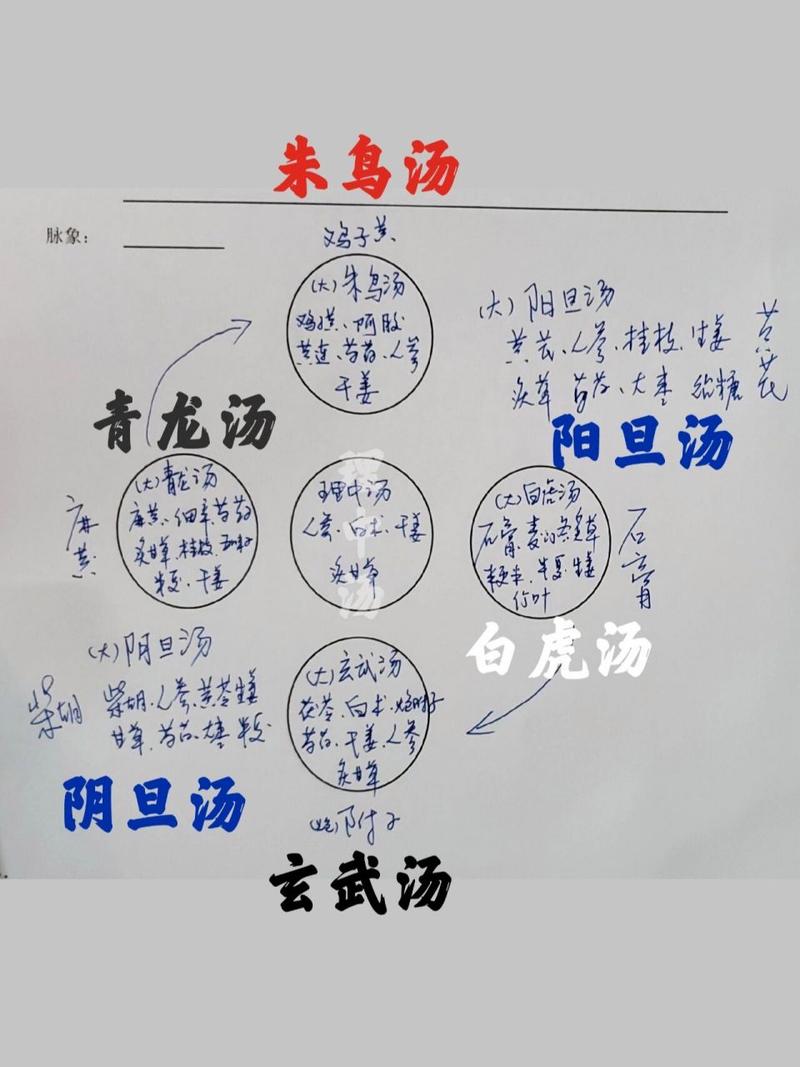 朱鸟汤
脉象:
鸡子黄
(大)朱鸟汤
鸡子黄、阿胶
黄连、芍药、人参
干姜
(大)阳旦汤
黄芪、人参、桂枝、生姜
炙草 芍药、大枣 饴糖
黄芪
青龙汤
阳旦汤
麻黄
(大)青龙汤
麻黄、细辛、芍药
炙甘草、桂枝、五味子
半夏、干姜
理中汤
理中汤
人参、白术、干姜
炙甘草
(大)白虎汤
石膏、麦门冬、炙草
粳米、半夏、生姜
竹叶
石膏
白虎汤
(大)阴旦汤
柴胡
柴胡、人参、黄芩、生姜
甘草、芍药、大枣、半夏
阴旦汤
(大)玄武汤
茯苓、白术、炮附子
芍药、干姜、人参
炙甘草
(炮)附子
玄武汤